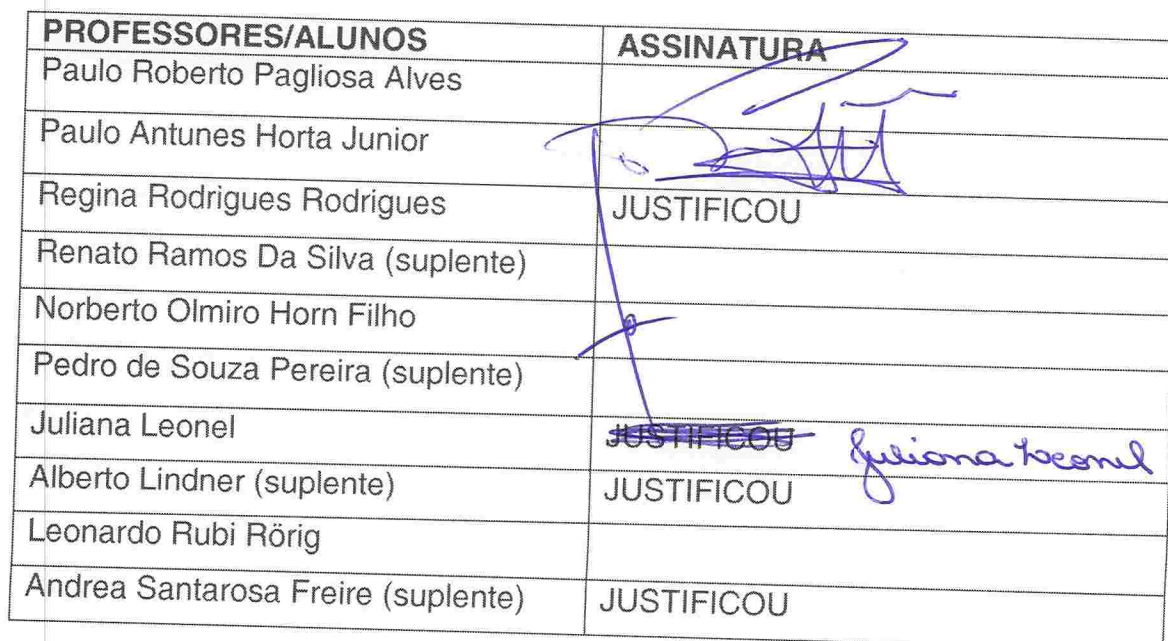 PROFESSORES/ALUNOS ASSINATURA
Paulo Roberto Pagliosa Alves
Paulo Antunes Horta Junior
Regina Rodrigues Rodrigues JUSTIFICOU
Renato Ramos Da Silva (suplente)
Norberto Olmiro Horn Filho
Pedro de Souza Pereira (suplente)
Juliana Leonel JUSTIFICOU Juliana Leonel
Alberto Lindner (suplente) JUSTIFICOU
Leonardo Rubi Rörig
Andrea Santarosa Freire (suplente) JUSTIFICOU